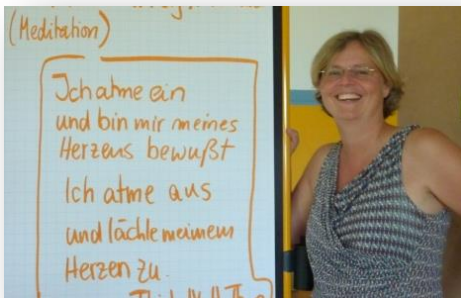 (Meditation)
Ich atme ein
und bin mir meines
Herzens bewußt
Ich atme aus
und lächle meinem
Herzen zu.